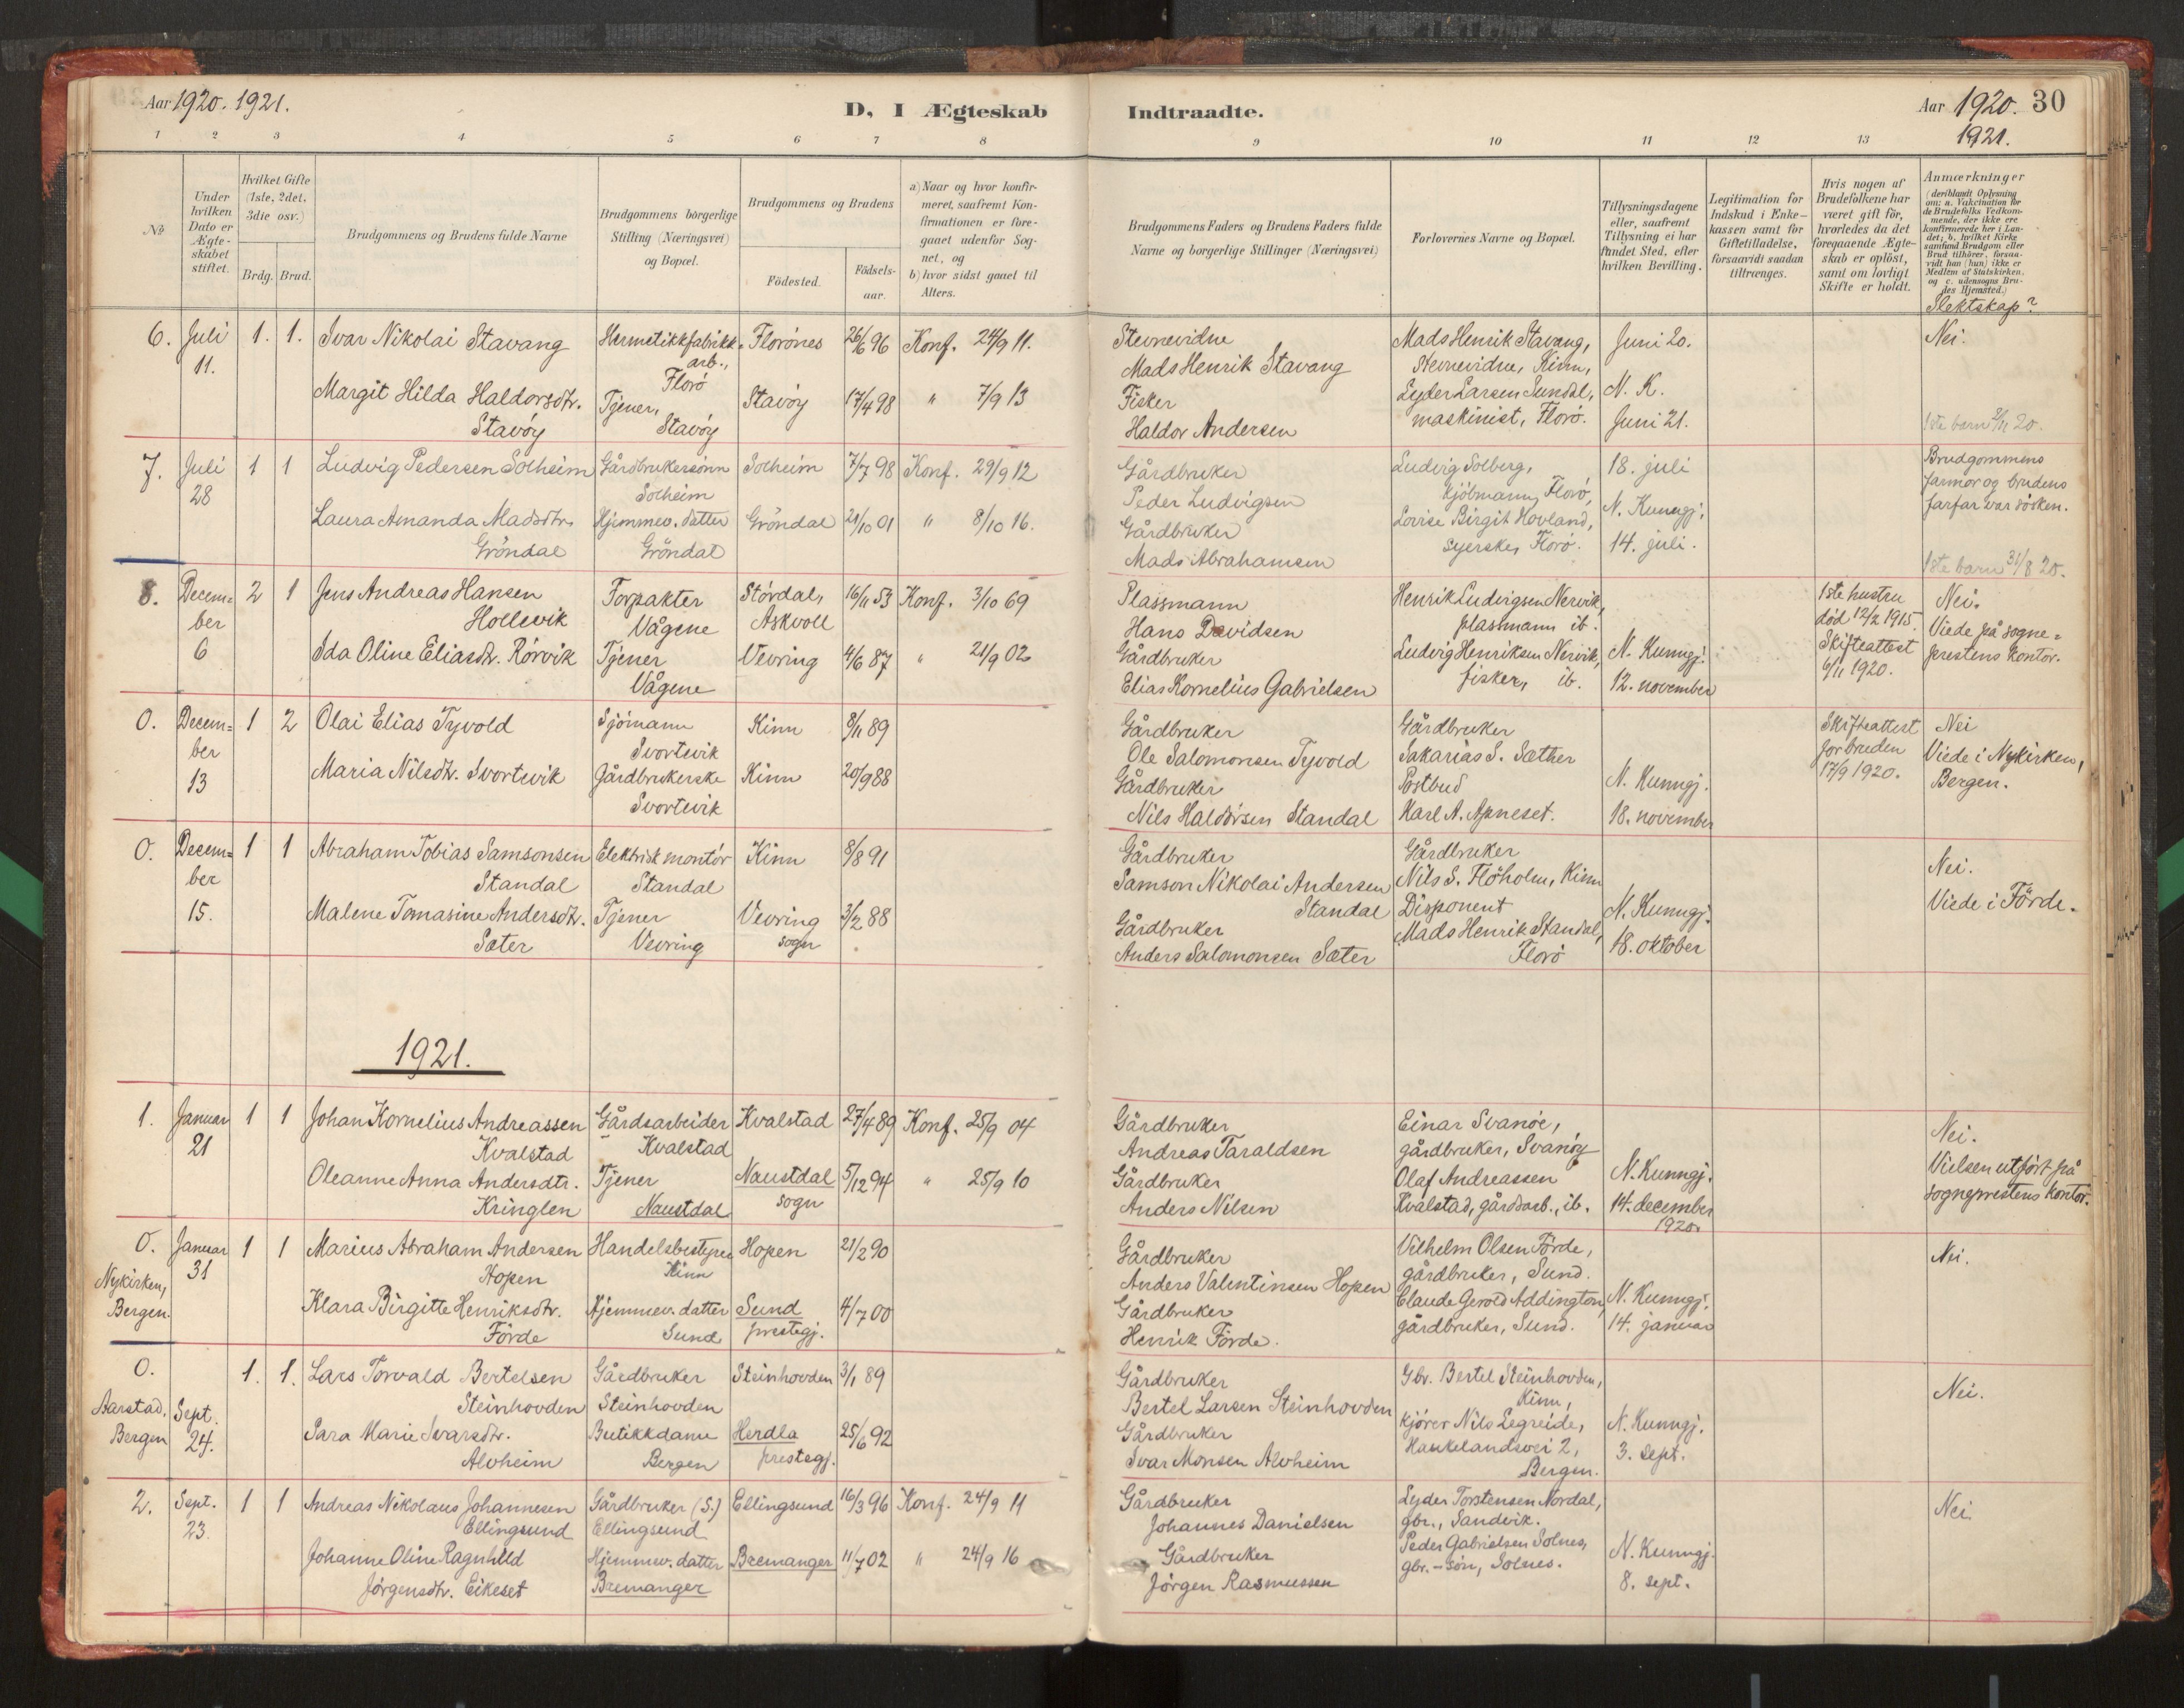 Aar 1920. 1921.
D, I Ægteskab Indtraadte.
Aar 1920. 30
1921.
1 2 3 4 5 6 7 8 9 10 11 12 13
No
Under hvilken Dato er Ægteskabet stiftet.
Hvilket Gifte (1ste, 2det, 3die osv.)
Brdg. Brud.
Brudgommens og Brudens fulde Navne
Brudgommens borgerlige Stilling (Næringsvei) og Bopæl.
Brudgommens og Brudens
Fødested.
Fødselsaar.
a) Naar og hvor konfirmeret, saafremt Konfirmationen er foregaaet udenfor Sognet, og
b) hvor sidst gaaet til Alters.
Brudgommens Faders og Brudens Faders fulde Navne og borgerlige Stillinger (Næringsvei)
Forlovernes Navne og Bopæl.
Tillysningsdagene eller, saafremt Tillysning ei har fundet Sted, efter hvilken Bevilling.
Legitimation for Indskud i Enkekassen samt for Giftetilladelse, forsaavidt saadan tiltrænges.
Hvis nogen af Brudefolkene har været gift før, hvorledes da det foregaaende Ægteskab er opløst, samt om lovligt Skifte er holdt.
Anmærkninger
(deriblandt Oplysning om: a. Vakcination for de Brudefolks Vedkommende, der ikke ere konfirmerede her i Landet; b. hvilket Kirkesamfund Brudgom eller Brud tilhører, forsaavidt han (hun) ikke er Medlem af Statskirken, og c. udensogns Brudes Hjemsted.)
Slektskap?
6. Juli 11. 1. 1. Ivar Nikolai Stavang
Hermetikkfabrikkarb., Florø
Florønes 26/6 96 Konf. 24/9 11.
Stevnevidne
Mads Henrik Stavang
Mads Henrik Stavang,
Stevnevidne, Kinn,
Juni 20.
Nei.
Margit Hilda Haldorsdtr.
Stavøy
Tjener,
Stavøy
Stavøy 17/4 98 " 7/9 13
Fisker
Haldor Andersen
Lyder Larsen Sundal,
maskinist, Florø.
N. K.
Juni 21.
1ste barn 2/11 20.
7. Juli 28 1 1 Ludvig Pedersen Solheim
Gårdbrukersønn
Solheim
Solheim 7/7 98 Konf. 29/9 12
Gårdbruker
Peder Ludvigsen
Ludvig Solberg,
kjøbmann, Florø,
18. juli
Brudgommens
farmor og brudens
farfar var søsken.
Laura Amanda Madsdtr.
Grøndal
Hjemmev. datter
Grøndal
Grøndal 21/10 01 " 8/10 16.
Gårdbruker
Mads Abrahamsen
Lovise Birgit Hovland,
syerske, Florø.
N. Kunngj.
14. juli.
1ste barn 31/8 20.
8. December 6 2 1 Jens Andreas Hansen
Hollevik
Forpakter
Vågene
Stórdal,
Askvoll
16/11 53 Konf. 3/10 69
Plassmann
Hans Davidsen
Henrik Ludvigsen Nervik,
plassmann ib.
1ste hustru
død 12/2 1915.
Skifteattest
6/11 1920.
Nei.
Viede på sogneprestens kontor.
Ida Oline Eliasdtr. Rørvik
Tjener
Vågene
Vevring 4/6 87 " 21/9 02
Gårdbruker
Elias Kornelius Gabrielsen
Ludvig Henriksen Nervik,
fisker, ib.
N. Kunngj.
12. november
0. December 13 1 2 Olai Elias Tyvold
Sjømann
Svortevik
Kinn 8/11 89
Gårdbruker
Ole Salomonsen Tyvold
Gårdbruker
Sakarias S. Sæther
Skifteattest
for bruden
17/9 1920.
Nei
Viede i Nykirken,
Bergen.
Maria Nilsdtr. Svortevik
Gårdbrukerske
Svortevik
Kinn 20/9 88
Gårdbruker
Nils Haldorsen Standal
Postbud
Karl A. Apneset.
N. Kunngj.
18. november
0. December 15. 1 1 Abraham Tobias Samsonsen
Standal
Elektrisk montør
Standal
Kinn 8/8 91
Gårdbruker
Samson Nikolai Andersen
Standal
Gårdbruker
Nils S. Flöholm, Kinn
Nei.
Viede i Förde.
Malene Tomasine Andersdtr.
Sæter
Tjener
Vevring
Vevring
sogn
3/2 88
Gårdbruker
Anders Salomonsen Sæter
Disponent
Mads Henrik Standal,
Florø
N. Kunngj.
18. oktober
1921.
1. Januar 21 1 1 Johan Kornelius Andreassen
Kvalstad
Gårdsarbeider
Kvalstad
Kvalstad 27/4 89 Konf. 25/9 04
Gårdbruker
Andreas Taraldsen
Einar Svanöe,
gårdbruker, Svanöy
Nei.
Vielsen utført på
sogneprestens kontor.
Oleanne Anna Andersdtr.
Kringlen
Tjener
Naustdal
Naustdal
sogn
5/12 94 " 25/9 10
Gårdbruker
Anders Nilsen
Olaf Andreassen
Kvalstad, gårdsarb., ib.
N. Kunngj.
14. december
1920.
0. Nykirken, Bergen. Januar 31 1 1 Marius Abraham Andersen
Hopen
Handelsbestyrer
Kinn
Hopen 21/2 90
Gårdbruker
Anders Valentinsen Hopen
Vilhelm Olsen Förde,
gårdbruker, Sund.
Nei.
Klara Birgitte Henriksdtr.
Förde
Hjemmev. datter
Sund
Sund
prestegj.
4/7 00
Gårdbruker
Henrik Förde.
Claude Gerold Addington,
gårdbruker, Sund.
N. Kunngj.
14. januar
0. Aarstad, Bergen Sept. 24. 1. 1. Lars Torvald Bertelsen
Steinhovden
Gårdbruker
Steinhovden
Steinhovden 3/1 89
Gårdbruker
Bertel Larsen Steinhovden
Gbr. Bertel Steinhovden,
Kinn,
Nei.
Sara Marie Ivarsdtr.
Alvheim
Butikkdame
Bergen
Herdla
prestegj.
25/6 92
Gårdbruker
Ivar Monsen Alvheim
kjører Nils Legreide,
Haukelandsvei 2,
Bergen.
N. Kunngj.
3. sept.
2. Sept. 23. 1 1 Andreas Nikolaus Johannesen
Ellingsund
Gårdbruker (S.)
Ellingsund
Ellingsund 16/3 96 Konf. 24/9 11
Gårdbruker
Johannes Danielsen
Lyder Torstensen Nordal,
gbr., Sandvik.
Nei.
Johanne Oline Ragnhild
Jørgensdtr. Eikeset
Hjemmev. datter
Bremanger
Bremanger 11/7 02 " 24/9 16
Gårdbruker
Jørgen Rasmussen
Peder Gabrielsen Solnes,
gbr.-søn, Solnes.
N. Kunngj.
8. sept.